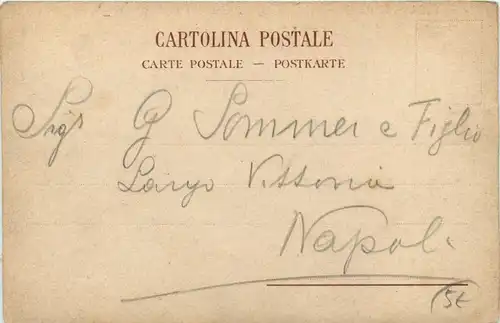 CARTOLINA POSTALE
CARTE POSTALE — POSTKARTE
Sigr G Sommer e Figlio
Largo Vittoria
Napoli
(5€